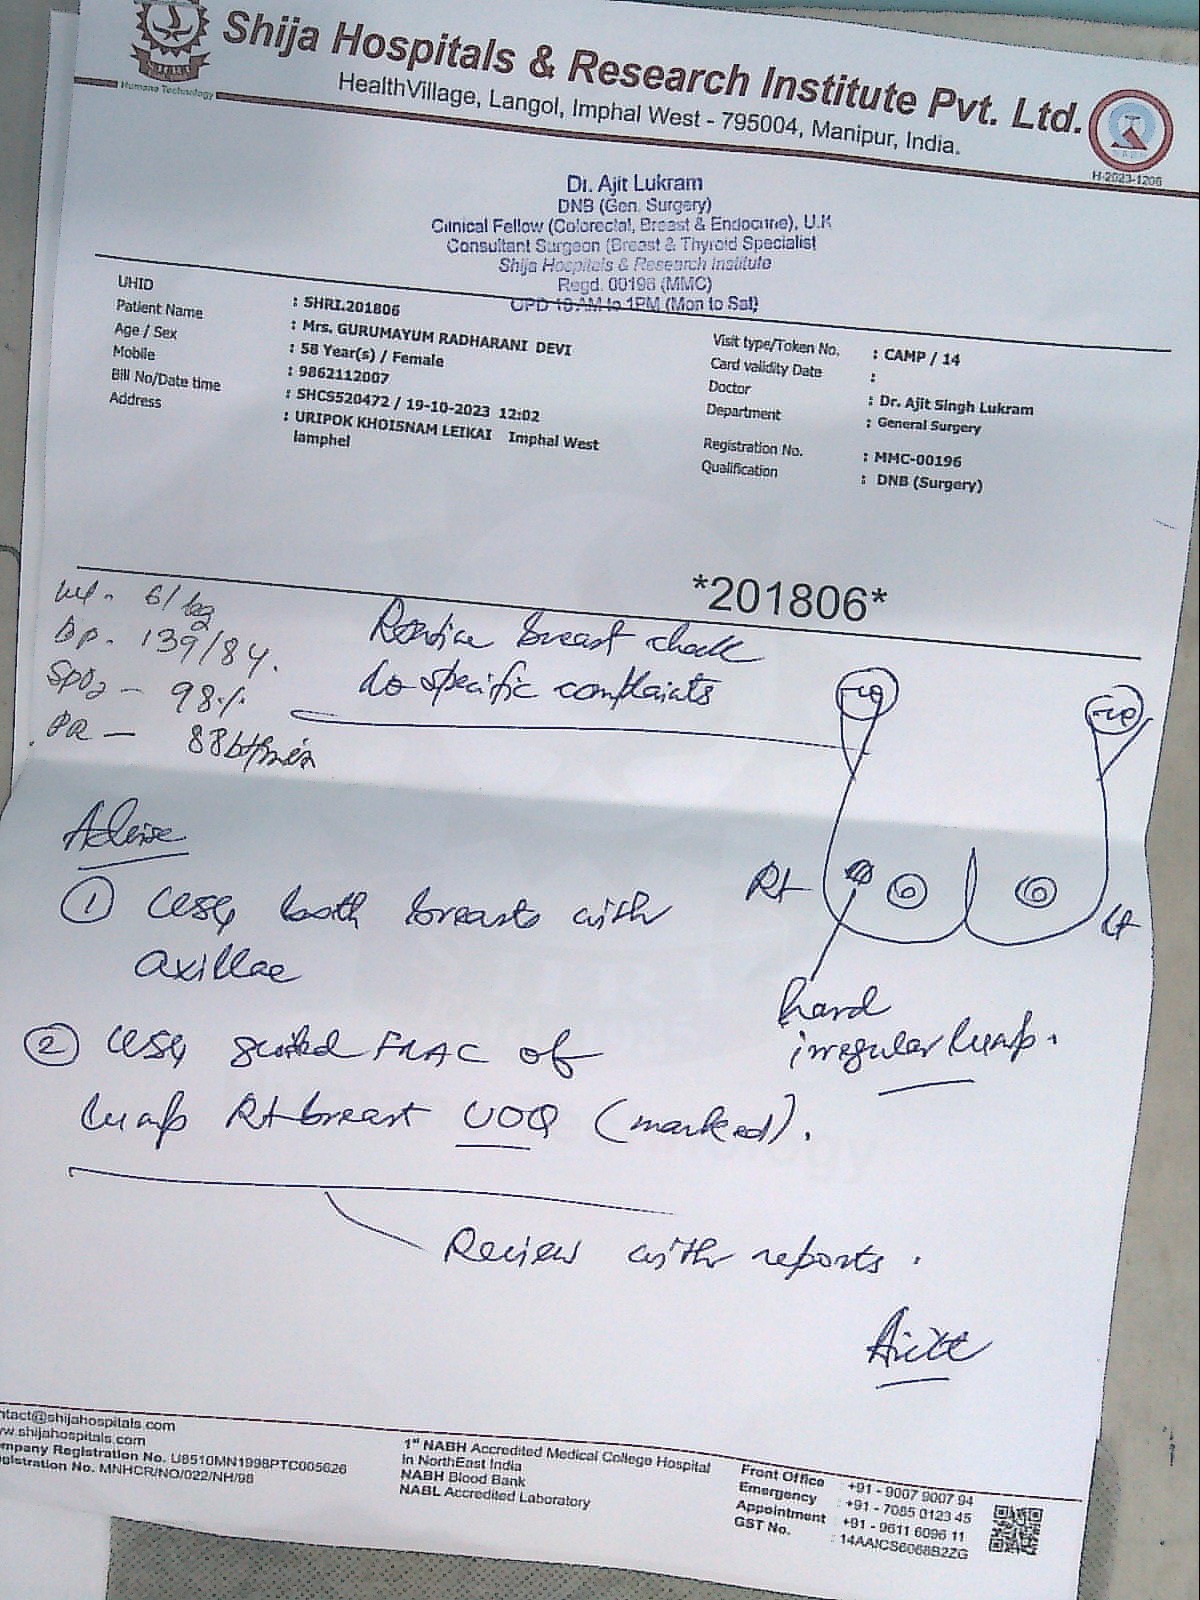 Shija Hospitals & Research Institute Pvt. Ltd.
Humane Technology
HealthVillage, Langol, Imphal West - 795004, Manipur, India.
H-2023-1206
Dr. Ajit Lukram
DNB (Gen. Surgery)
Clinical Fellow (Colorectal, Breast & Endocrine), U.K
Consultant Surgeon (Breast & Thyroid Specialist
Shija Hospitals & Research Institute
Regd. 00196 (MMC)
OPD 10 AM to 1PM (Mon to Sat)
UHID : SHRI.201806
Patient Name : Mrs. GURUMAYUM RADHARANI DEVI
Age / Sex : 58 Year(s) / Female
Mobile : 9862112007
Bill No/Date time : SHCS520472 / 19-10-2023 12:02
Address : URIPOK KHOISNAM LEIKAI Imphal West
lamphel
Visit type/Token No. : CAMP / 14
Card validity Date :
Doctor : Dr. Ajit Singh Lukram
Department : General Surgery
Registration No. : MMC-00196
Qualification : DNB (Surgery)
*201806*
Wt - 61 kg
BP - 139/84
SpO2 - 98%
PR - 88bt/min
Routine breast check
No specific complaints
-ve
-ve
Rt
Lt
hard
irregular lump.
Advise
① USG both breasts with
axillae
② USG guided FNAC of
lump Rt breast UOQ (marked).
Review with reports.
Ajit
ntact@shijahospitals.com
ww.shijahospitals.com
mpany Registration No. U8510MN1998PTC005626
gistration No. MNHCR/NO/022/NH/98
1st NABH Accredited Medical College Hospital
in NorthEast India
NABH Blood Bank
NABL Accredited Laboratory
Front Office : +91 - 9007 9007 94
Emergency : +91 - 7085 0123 45
Appointment : +91 - 9611 6096 11
GST No. : 14AAICS6068B2ZG